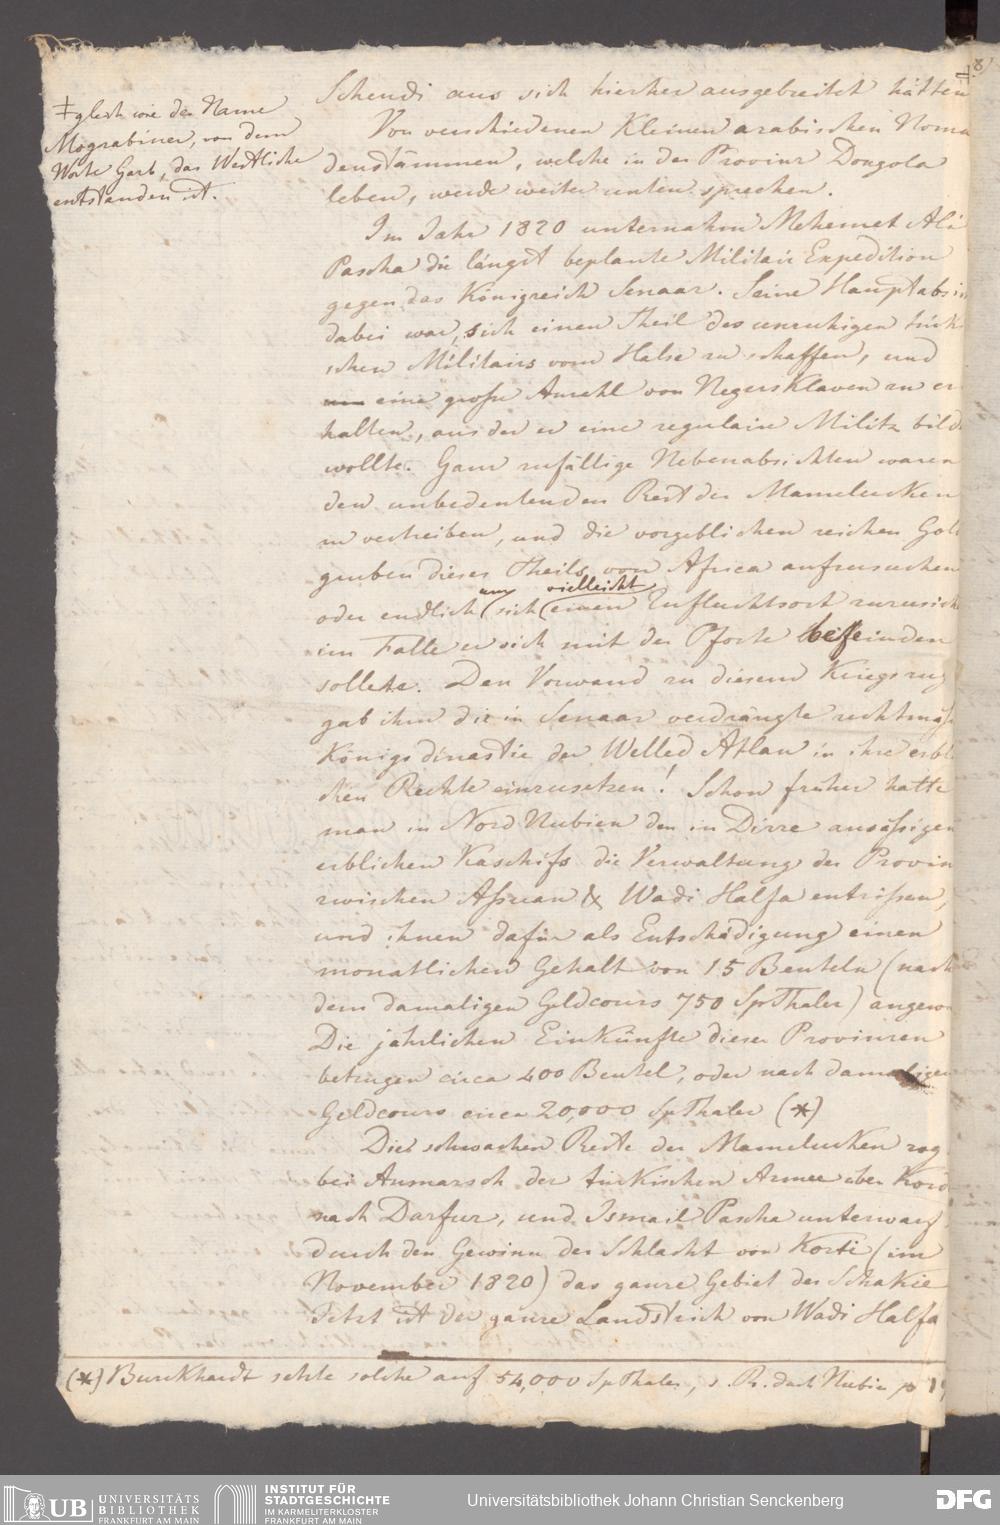 8)
‡
‡ gleich wie der Name
Mograbiner, von dem
Worte Garb, das Westliche
entstanden ist.
Schendi aus sich hierher ausgebreitet hätten
Von verschiedenen Kleinen arabischen Noma
denstämmen, welche in der Provinz Dongola
leben, werde weiter unten sprechen.
Im Jahr 1820 unternahm Mehemet Ali
Pascha die längst beplante Militair Expedition
gegen das Königreich Senaar. Seine Hauptabsi
dabei war, sich einen Theil des unruhigen türki
schen Militairs vom Halse zu schaffen, und
eine große Anzahl von NegersKlaven zu er
halten, aus der er eine regulaire Militz bild
wollte. Ganz zufällige Nebenabsichten waren
den unbedeutenden Rest der Mamelucken
zu vertreiben, und die vorgeblichen reichen Gol
gruben dieses Theils von Africa aufzusuchen
um vielleicht
oder endlich sich einen Zufluchtsort zuzusich
im Falle er sich mit der Pforte befeinden
sollete. Den Vorwand zu diesem Kriegszug
gab ihm die in Senaar verdrängte rechtmäß
Königsdinastie der Welled Atlan in ihre erbli
chen Rechte einzusetzen! Schon früher hatte
man in Nord Nubien den in Dirre ansäßigen
erblichen Kaschifs die Verwaltung der Provin
zwischen Aßuan & Wadi Halfa entrißen,
und ihnen dafür als Entschädigung einen
monatlichen Gehalt von 15 Beuteln (nach
dem damaligen Geldcours 750 SpThaler) angew
Die jährlichen EinKünfte dieser Provinzen
betrugen circa 400 Beutel, oder nach damaligen
Geldcours circa 20,000 SpThaler (*)
Die schwachen Reste der Mamelucken zog
bei Anmarsch der türKischen Armee über Kord
nach Darfur, und Ismail Pascha unterwarf
durch den Gewinn der Schlacht von Korti (im
November 1820) das ganze Gebiet der Schakie
Jetzt ist der ganze Landstrich von Wadi Halfa
(*) Burckhardt setzte solche auf 54,000 SpThaler, s. R. durch Nubien p 19
UB UNIVERSITÄTS
BIBLIOTHEK
FRANKFURT AM MAIN
INSTITUT FÜR
STADTGESCHICHTE
IM KARMELITERKLOSTER
FRANKFURT AM MAIN
Universitätsbibliothek Johann Christian Senckenberg
DFG